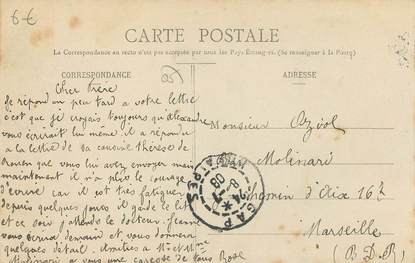 6 €
CARTE POSTALE
La Correspondance au recto n'est pas acceptée par tous les Pays Étrangers. (Se renseigner à la Poste)
CORRESPONDANCE
ADRESSE
05
Cher frère
Je répond un peu tard a votre lettre
c'est que je croyais toujours qu'Alexandre
vous écrirait lui même il a répondu
a la lettre de sa cousine thérèse de
Rouen que vous lui avez envoyer mais
maintenant il n'a plus le courage
d'écrire car il est très fatiguer
depuis quelques jours il garde le lit
et ce soir j'attends le docteur. Jeanne
vous écrira demain et vous donnera
quelques détail. Amitiés a Mr et Mme
Molinari a vous une caresse de tous Rose
Monsieur Oziol
Molinari
Chemin d'Aix 162
Marseille
(B.D.R)
GAP
HTES ALPES
24
8-08